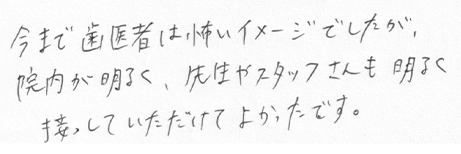 今まで歯医者は怖いイメージでしたが、
院内が明るく、先生やスタッフさんも明るく
接っしていただけてよかったです。